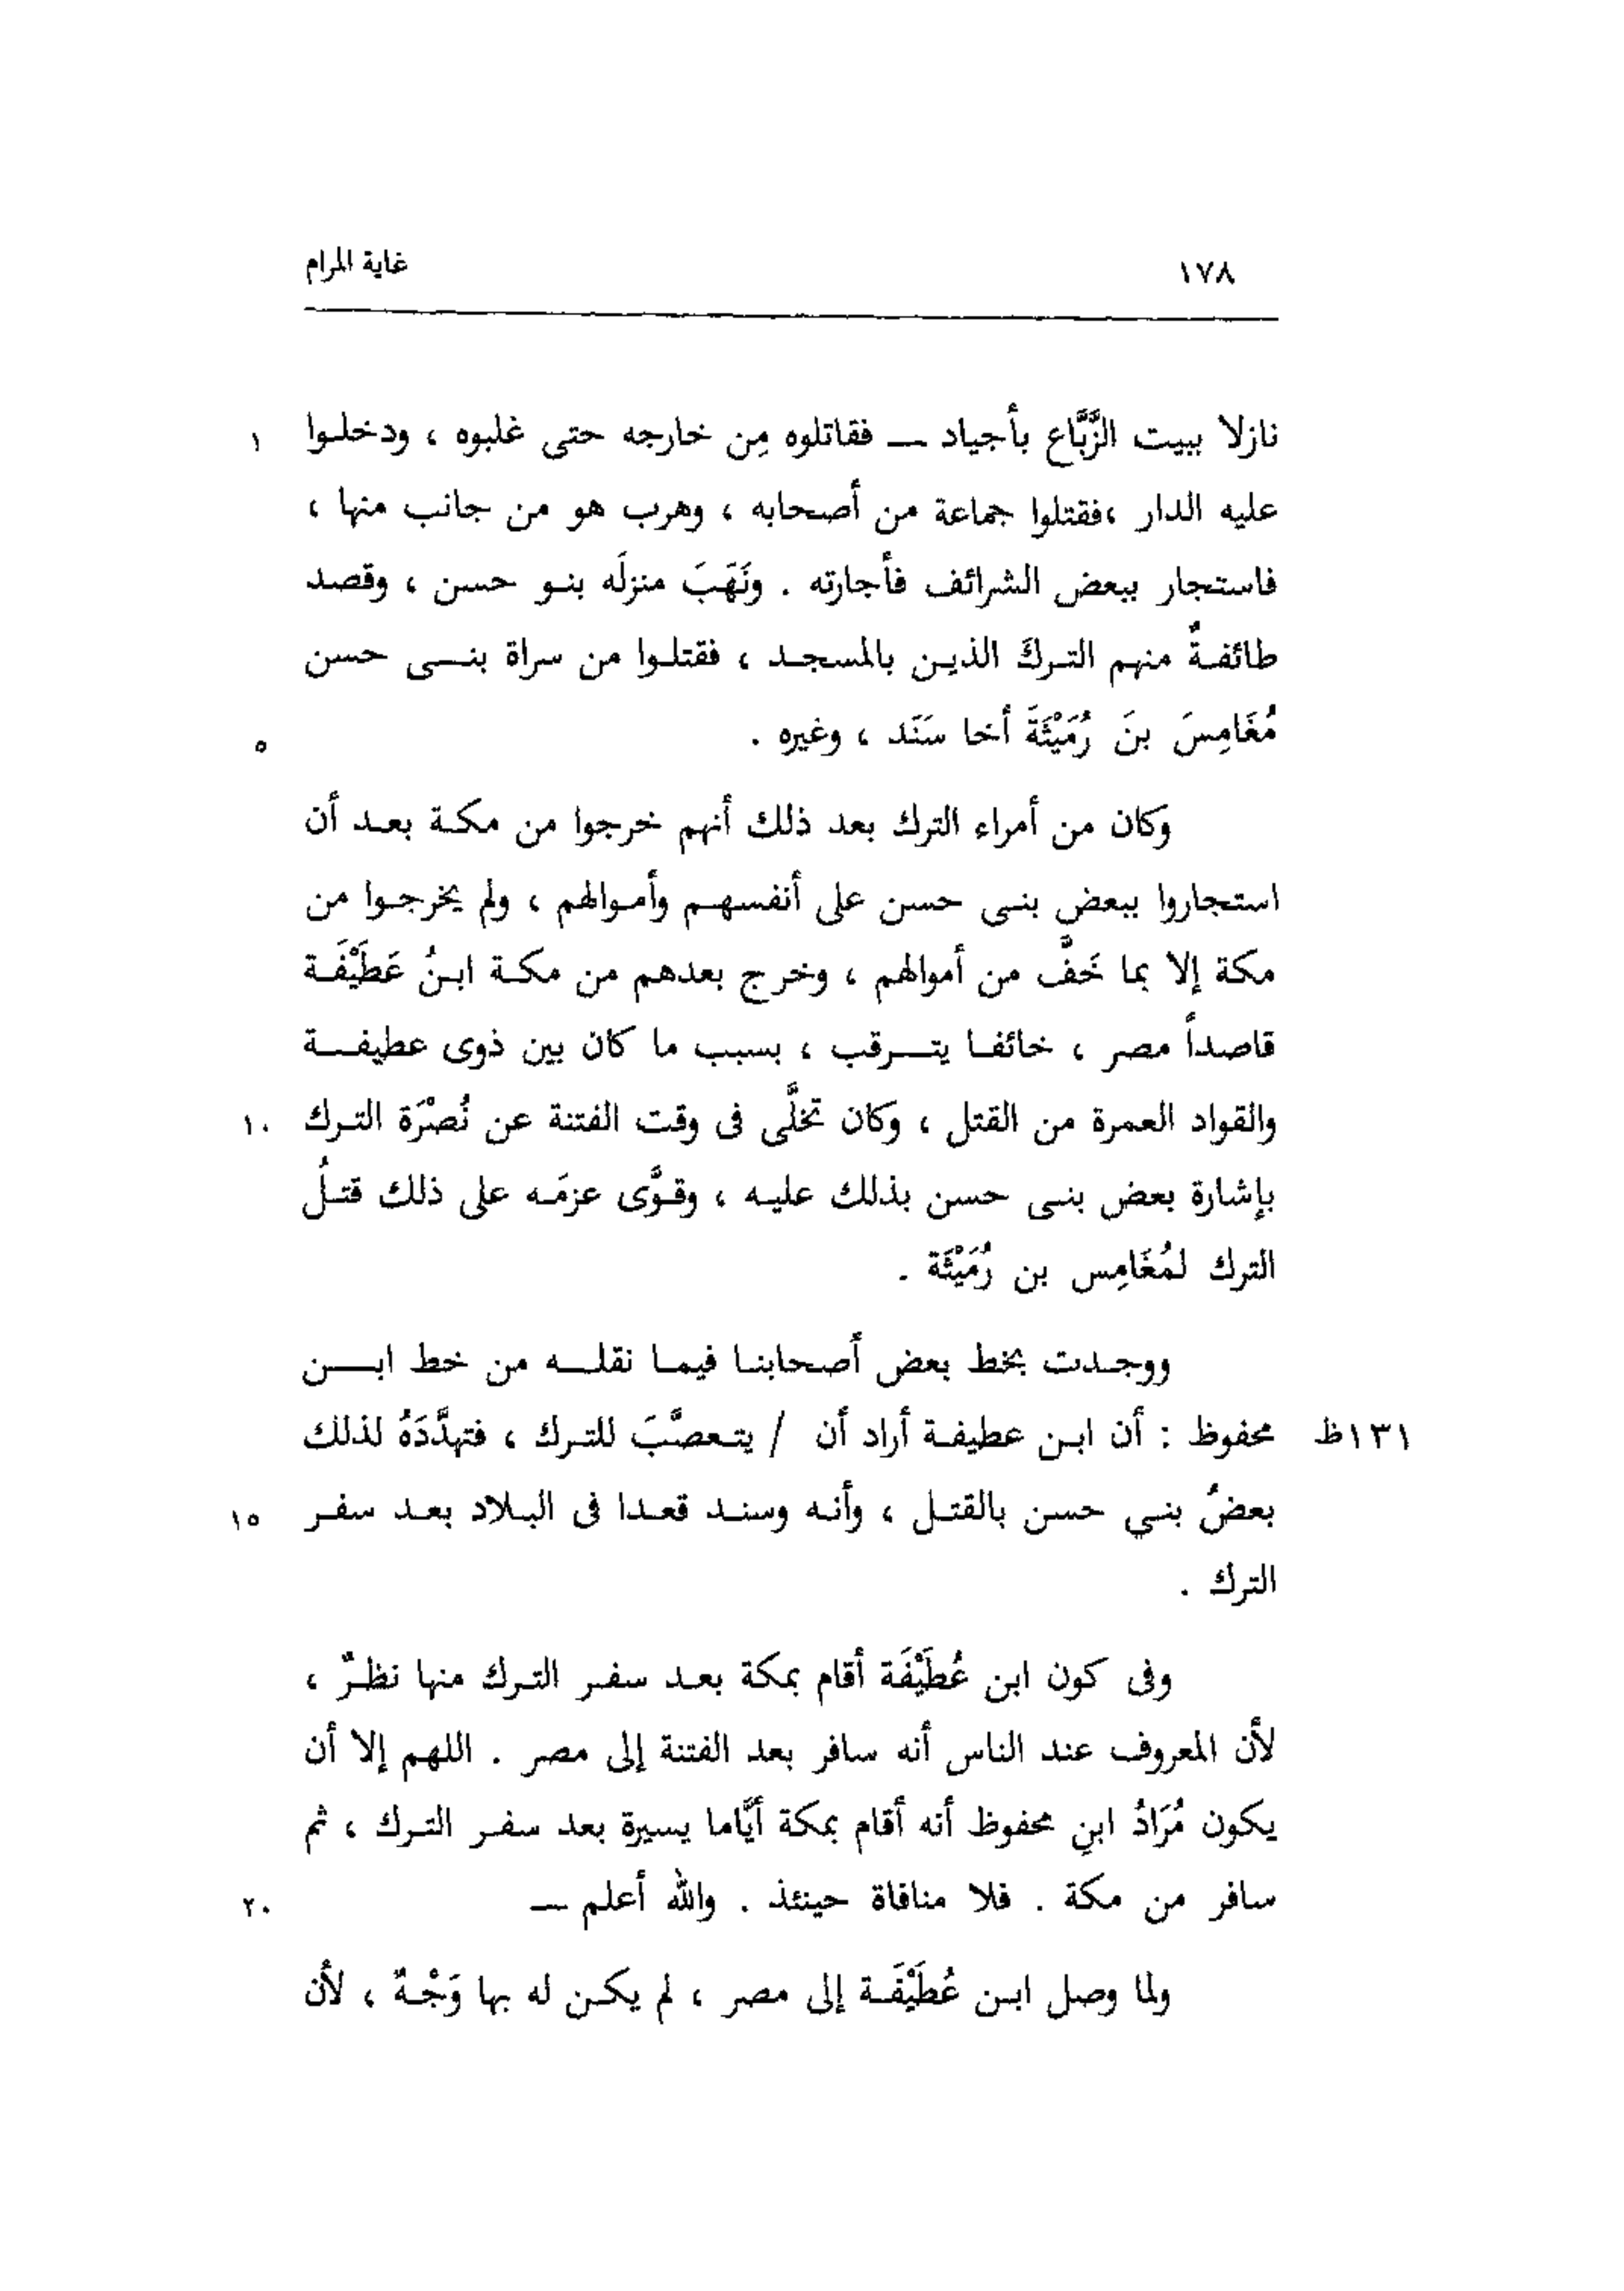 ١٧٨ غاية المرام
نازلا ببيت الزَّبَّاع بأجياد — فقاتلوه مِن خارجه حتى غلبوه ، ودخلوا ١
عليه الدار ،فقتلوا جماعة من أصحابه ، وهرب هو من جانب منها ،
فاستجار ببعض الشرائف فأجارته . ونَهَبَ منزلَه بنو حسن ، وقصد
طائفةٌ منهم التركَ الذين بالمسجد ، فقتلوا من سراة بنى حسن
مُغَامِسَ بنَ رُمَيْثَةَ أخا سَنَد ، وغيره . ٥
وكان من أمراء الترك بعد ذلك أنهم خرجوا من مكة بعد أن
استجاروا ببعض بنى حسن على أنفسهم وأموالهم ، ولم يخرجوا من
مكة إلا بما خَفَّ من أموالهم ، وخرج بعدهم من مكة ابنُ عَطَيْفَة
قاصداً مصر ، خائفا يترقب ، بسبب ما كان بين ذوى عطيفة
والقواد العمرة من القتل ، وكان تخلَّى فى وقت الفتنة عن نُصْرَة الترك ١٠
بإشارة بعض بنى حسن بذلك عليه ، وقوَّى عزمَه على ذلك قتلُ
الترك لمُغَامِس بن رُمَيْثَة .
ووجدت بخط بعض أصحابنا فيما نقله من خط ابن
١٣١ظ محفوظ : أن ابن عطيفة أراد أن / يتعصَّبَ للترك ، فتهدَّدَهُ لذلك
بعضُ بني حسن بالقتل ، وأنه وسند قعدا فى البلاد بعد سفر ١٥
الترك .
وفى كون ابن عُطَيْفَة أقام بمكة بعد سفر الترك منها نظرٌ ،
لأن المعروف عند الناس أنه سافر بعد الفتنة إلى مصر . اللهم إلا أن
يكون مُرَادُ ابنِ محفوظ أنه أقام بمكة أيَّاما يسيرة بعد سفر الترك ، ثم
سافر من مكة . فلا منافاة حينئذ . والله أعلم — ٢٠
ولما وصل ابن عُطَيْفَة إلى مصر ، لم يكن له بها وَجْهٌ ، لأن